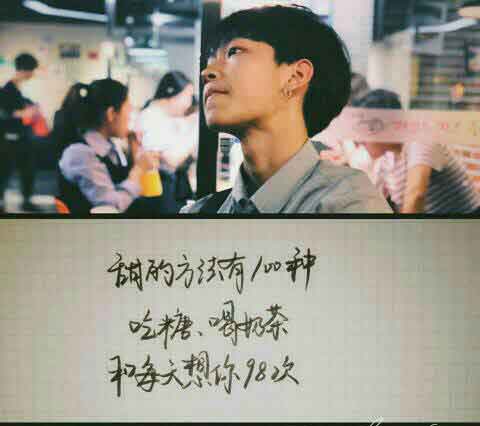 甜的方法有100种
吃糖、喝奶茶
和每天想你98次